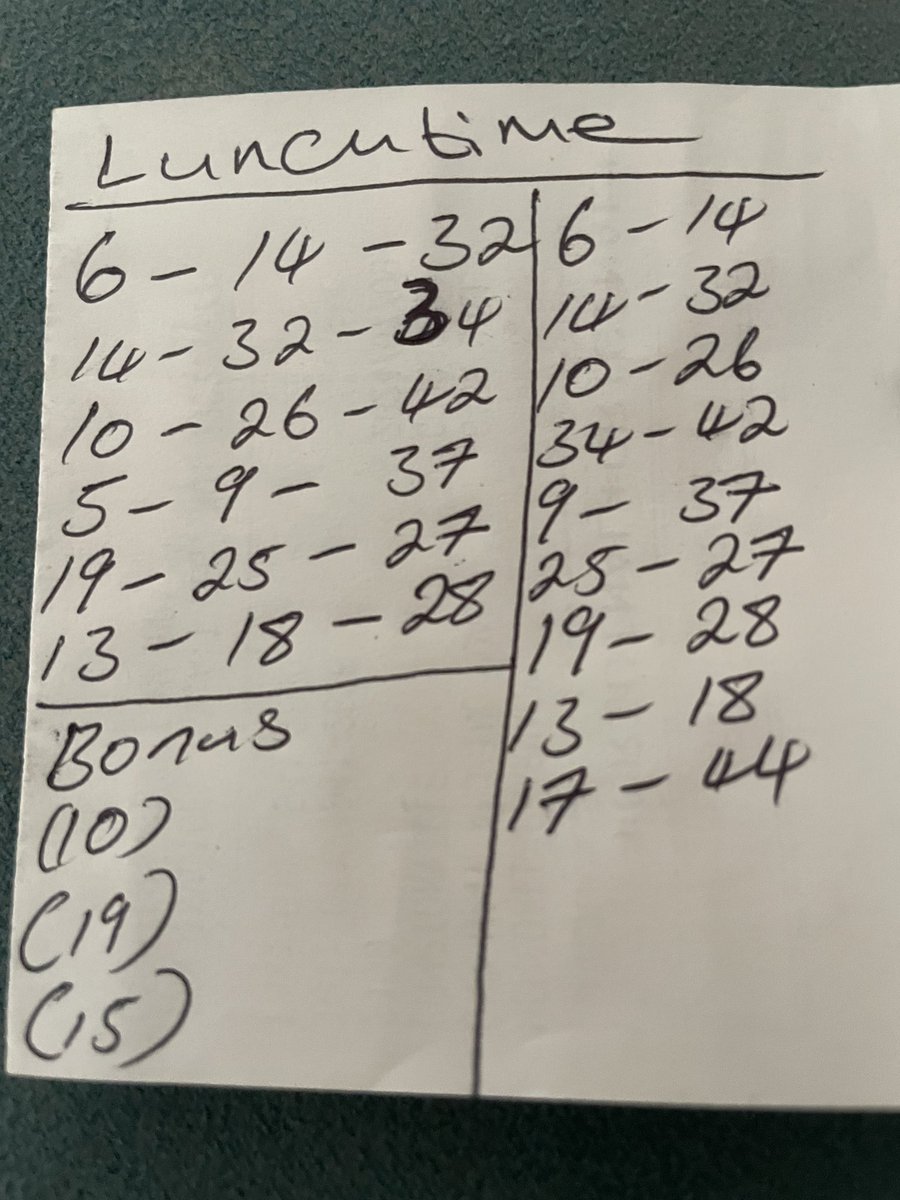 Lunchtime
6 - 14 - 32
14 - 32 - 34
10 - 26 - 42
5 - 9 - 37
19 - 25 - 27
13 - 18 - 28
Bonus
(10)
(19)
(15)
6 - 14
14 - 32
10 - 26
34 - 42
9 - 37
25 - 27
19 - 28
13 - 18
17 - 44